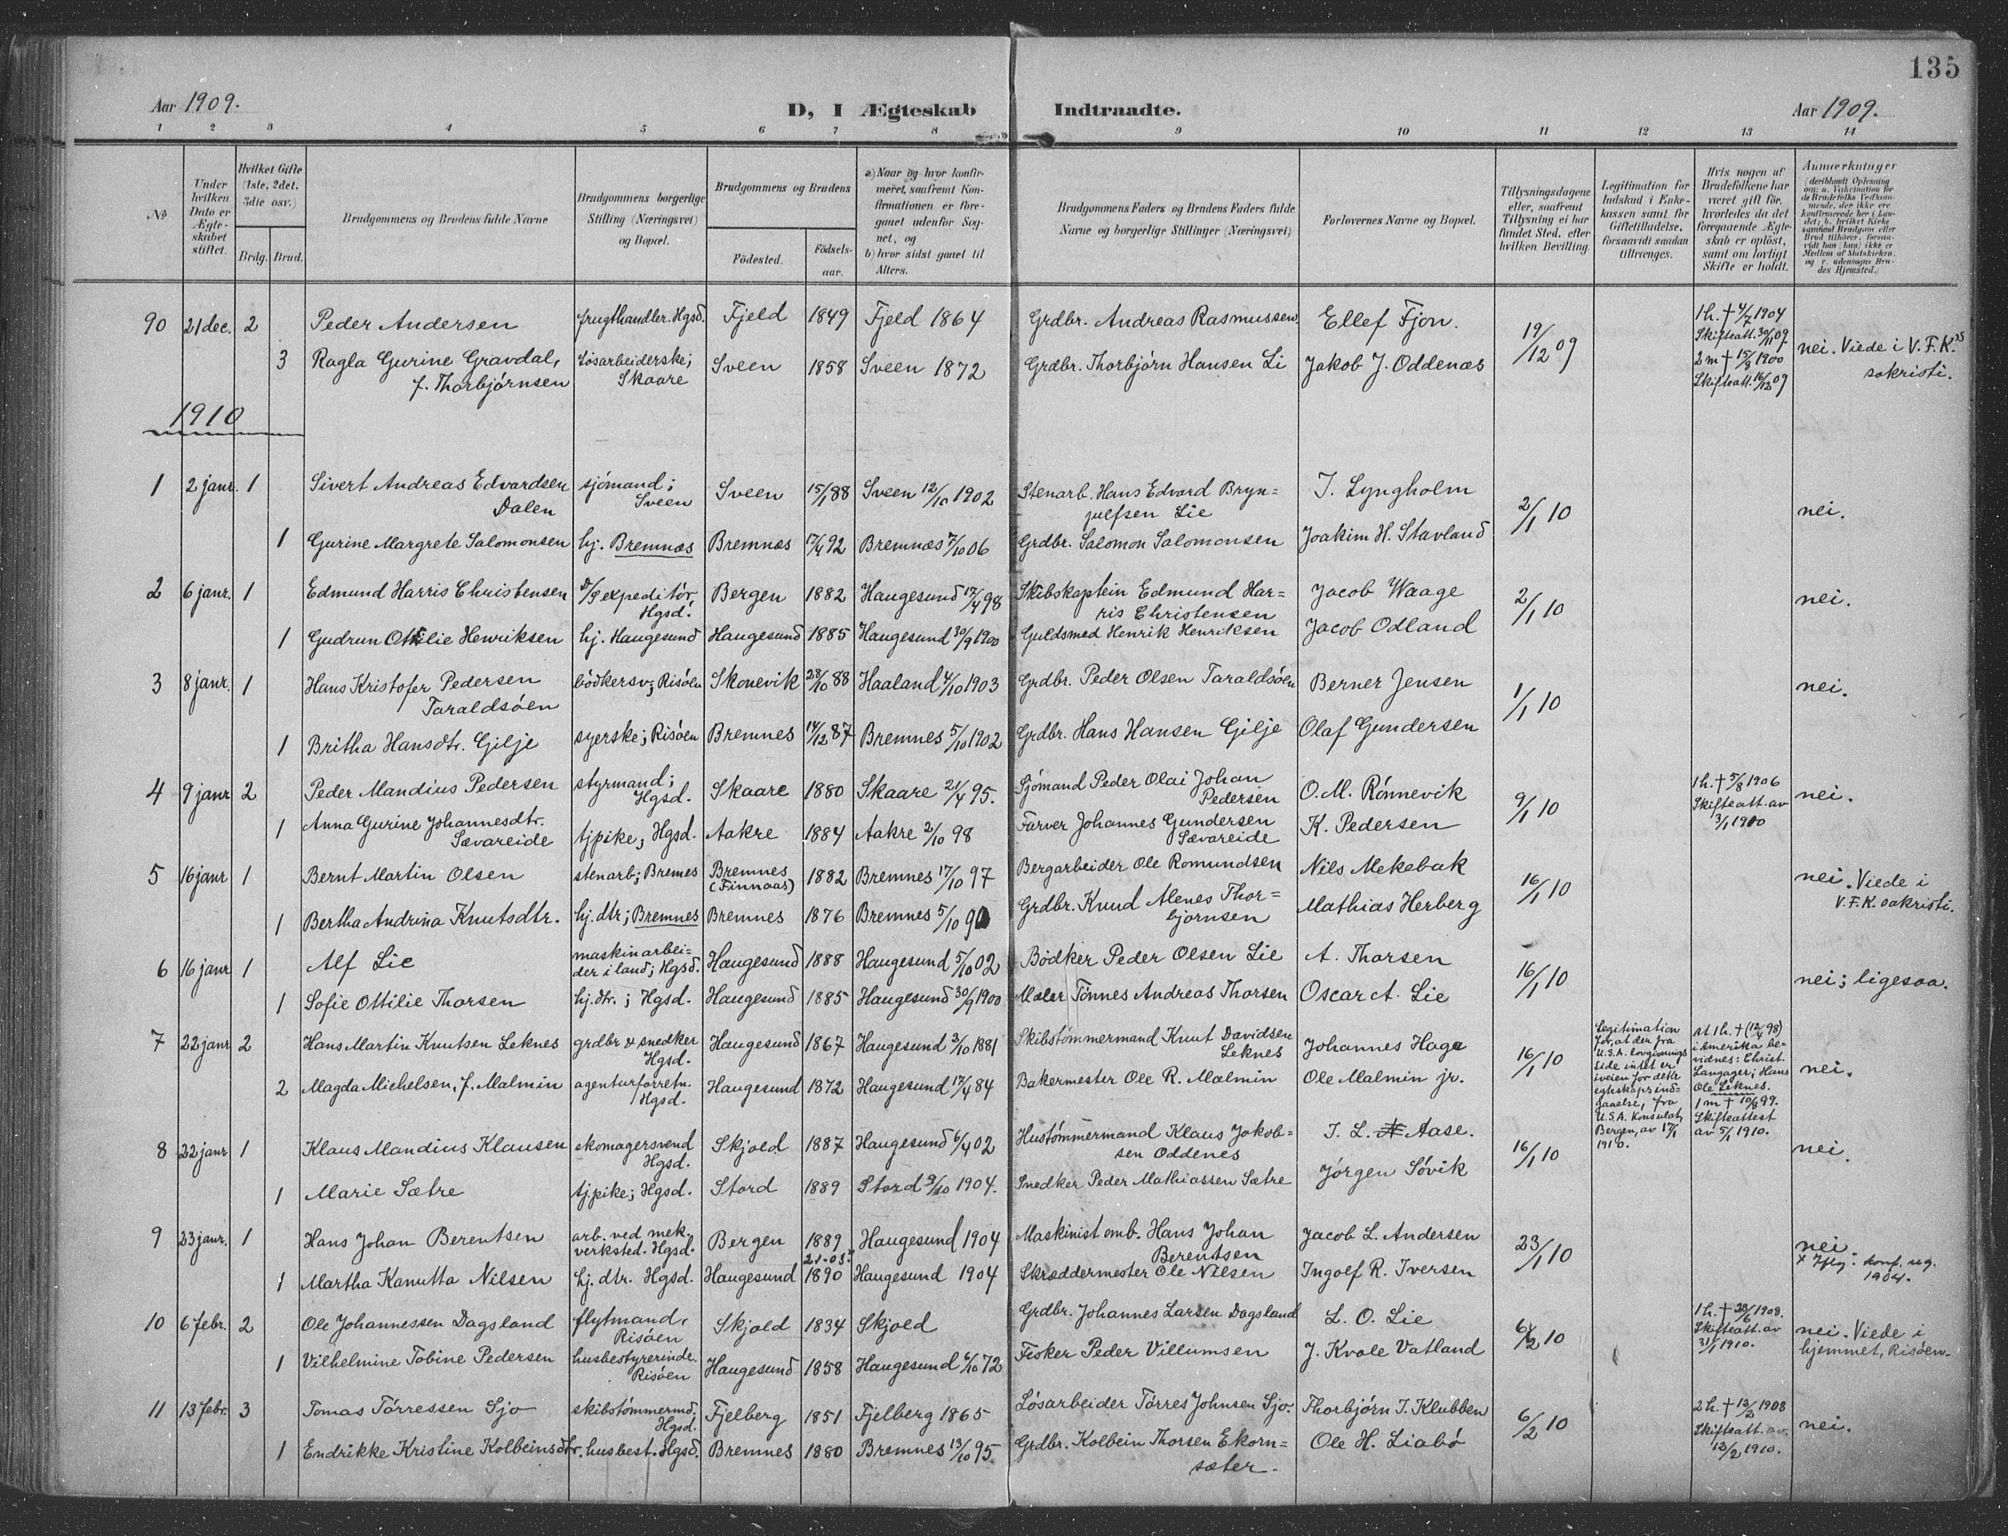 135
Aar 1909.
D, I Ægteskab Indtraadte.
Aar 1909.
1 2 3 4 5 6 7 8 9 10 11 12 13 14
No
Under hvilken Dato er Ægte-skabet stiftet.
Hvilket Gifte (1ste, 2det, 3die osv.)
Brdg. Brud.
Brudgommens og Brudens fulde Navne
Brudgommens borgerlige Stilling (Næringsvei) og Bopæl.
Brudgommens og Brudens
Fødested. Fødsels-aar.
a) Naar og hvor konfir-meret, saafremt Kon-firmationen er fore-gaaet udenfor Sog-net, og b) hvor sidst gaaet til Alters.
Brudgommens Faders og Brudens Faders fulde Navne og borgerlige Stillinger (Næringsvei)
Forlovernes Navne og Bopæl.
Tillysningsdagene eller, saafremt Tillysning ei har fundet Sted, efter hvilken Bevilling.
Legitimation for Indskud i Enke-kassen samt for Giftetilladelse, forsaavidt saadan tiltrænges.
Hvis nogen af Brudefolkene har været gift før, hvorledes da det foregaaende Ægte-skab er opløst, samt om lovligt Skifte er holdt.
Anmærkninger
90 21 dec. 2 Peder Andersen frugthandler. Hgsd. Fjeld 1849 Fjeld 1864 Grdbr. Andreas Rasmussen Ellef Fjon. 19/12 09 1 h. † 4/7 1904 Skifteatt. 30/11 09
3 Ragla Gurine Gravdal, f. Thorbjørnsen Løsarbeiderske; Skaare Sveen 1858 Sveen 1872 Grdbr. Thorbjørn Hansen Li Jakob J. Oddenæs 2 m † 15/8 1900 Skifteatt. 16/12 09 nei. Viede i V. F. K.s sakristi.
1910
1 2 janr. 1 Sivert Andreas Edvardsen Dalen sjömand; Sveen Sveen 15/1 88 Sveen 12/10 1902 Stenarb. Hans Edvard Bryn=julfsen Lie T. Lyngholm 2/1 10 nei.
1 Gurine Margrete Salomonsen hj. Bremnæs Bremnæs 17/4 92 Bremnæs 7/10 06 Grdbr. Salomon Salomonsen Joakim H. Stavland
2 6 janr. 1 Edmund Harris Christensen D/S expeditör, Hgsd. Bergen 1882 Haugesund 17/4 98 Skibskaptein Edmund Har=ris Christensen Jacob Waage 2/1 10 nei.
1 Gudrun Ottilie Henriksen hj. Haugesund Haugesund 1885 Haugesund 30/9 1900 Guldsmed Henrik Henriksen Jacob Odland
3 8 janr. 1 Hans Kristofer Pedersen Taraldsöen bödkersv; Risöen Skonevik 28/10 88 Haaland 4/10 1903 Grdbr. Peder Olsen Taraldsöen Berner Jensen 1/1 10 nei.
1 Britha Hansdtr. Gilje syerske; Risöen Bremnes 14/12 87 Bremnes 5/10 1902 Grdbr. Hans Hansen Gilje Olaf Gundersen
4 9 janr 2 Peder Mandius Pedersen styrmand; Hgsd. Skaare 1880 Skaare 21/4 95. Sjömand Peder Olai Johan Pedersen O. M. Rönnevik 9/1 10 1 h. † 5/8 1906 Skifteatt. av 3/1 1910 nei.
1 Anna Gurine Johannesdtr. Sævareide tjpike; Hgsd. Aakre 1884 Aakre 2/10 98 Farver Johannes Gundersen Sævareide K. Pedersen
5 16 janr 1 Bernt Martin Olsen stenarb; Bremes Bremnes (Finnaas) 1882 Bremnes 17/10 97 Bergarbeider Ole Romundsen Nils Mekebak 16/1 10 nei. Viede i V. F. K. sakristi.
1 Bertha Andrina Knutsdtr. hj. dtr; Bremnes Bremnes 1876 Bremnes 5/10 90 Grdbr. Knud Alenes Thor=bjørnsen Mathias Herberg
6 16 janr 1 Alf Lie maskinarbei=der i land; Hgsd. Haugesund 1888 Haugesund 5/10 02 Bödker Peder Olsen Lie A. Thorsen 16/1 10 nei; ligesaa.
1 Sofie Ottilie Thorsen hj. dtr.; Hgsd. Haugesund 1885 Haugesund 30/9 1900 Maler Tönnes Andreas Thorsen Oscar A. Lie
7 22 janr 2 Hans Martin Knutsen Leknes grdbr & snedker Hgsd. Haugesund 1867 Haugesund 3/10 1881 Skibstömmermand Knut Davidsen Leknes Johannes Haga 16/1 10 Legitimation for, at der fra U.S.A. lovgivnings side intet er iveien for dette egteskaps ind=gaaelse, fra U.S.A. Konsulat, Bergen, av 17/1 1910. 1 h. † (12/4 98) i Amerika be=vidnes: Christ. Langager; Hans Ole Leknes. nei.
2 Magda Michelsen, f. Malmin agenturforretn. Hgsd. Haugesund 1872 Haugesund 17/4 84 Bakermester Ole R. Malmin Ole Malmin jr. 1 m † 10/6 99. Skifteattest av 5/1 1910.
8 22 janr 1 Klaus Mandius Klausen skomagersvend Hgsd. Skjold 1887 Haugesund 6/4 02 Hustömmermand Klaus Jakob=sen Oddenes T. L. Aase. 16/1 10 nei.
1 Marie Sætre tjpike; Hgsd. Stord 1889 Stord 9/10 1904. Snedker Peder Mathiassen Sætre Jörgen Sövik
9 23 janr. 1 Hans Johan Berentsen arb. ved mek. verksted. Hgsd. Bergen 1889 Haugesund 1904 Maskinist omb. Hans Johan Berentsen Jacob L. Andersen 23/1 10 nei
1 Martha Kanutta Nilsen hj. dtr. Hgsd. Haugesund 1890 Haugesund 1904 Skræddermester Ole Nilsen Ingolf R. Iversen konf. reg. 1904.
10 6 febr. 2 Ole Johannessen Dagsland flytmand, Risöen Skjold 1834 Skjold Grdbr. Johannes Larsen Dagsland L. O. Lie 6/2 10 1 h. † 28/6 1908. Skifteatt. av 31/1 1910. nei. Viede i hjemmet, Risöen.
1 Vilhelmine Tobine Pedersen husbestyrerinde. Risöen Haugesund 1858 Haugesund 6/10 72 Fisker Peder Villumsen J. Kvale Vatland
11 13 febr. 3 Tomas Törressen Sjo skibstömmermd, Hgsd. Fjelberg 1851 Fjelberg 1865 Løsarbeider Törres Johnsen Sjo. Thorbjørn T. Klubben 6/2 10 2 h. † 13/2 1908 Skifteatt. av 12/2 1910. nei.
1 Endrikke Kristine Kolbeinsdtr. husbest. Hgsd. Bremnes 1880 Bremnes 13/10 95. Grdbr. Kolbein Thorsen Ekorn=sæter. Ole H. Liabö